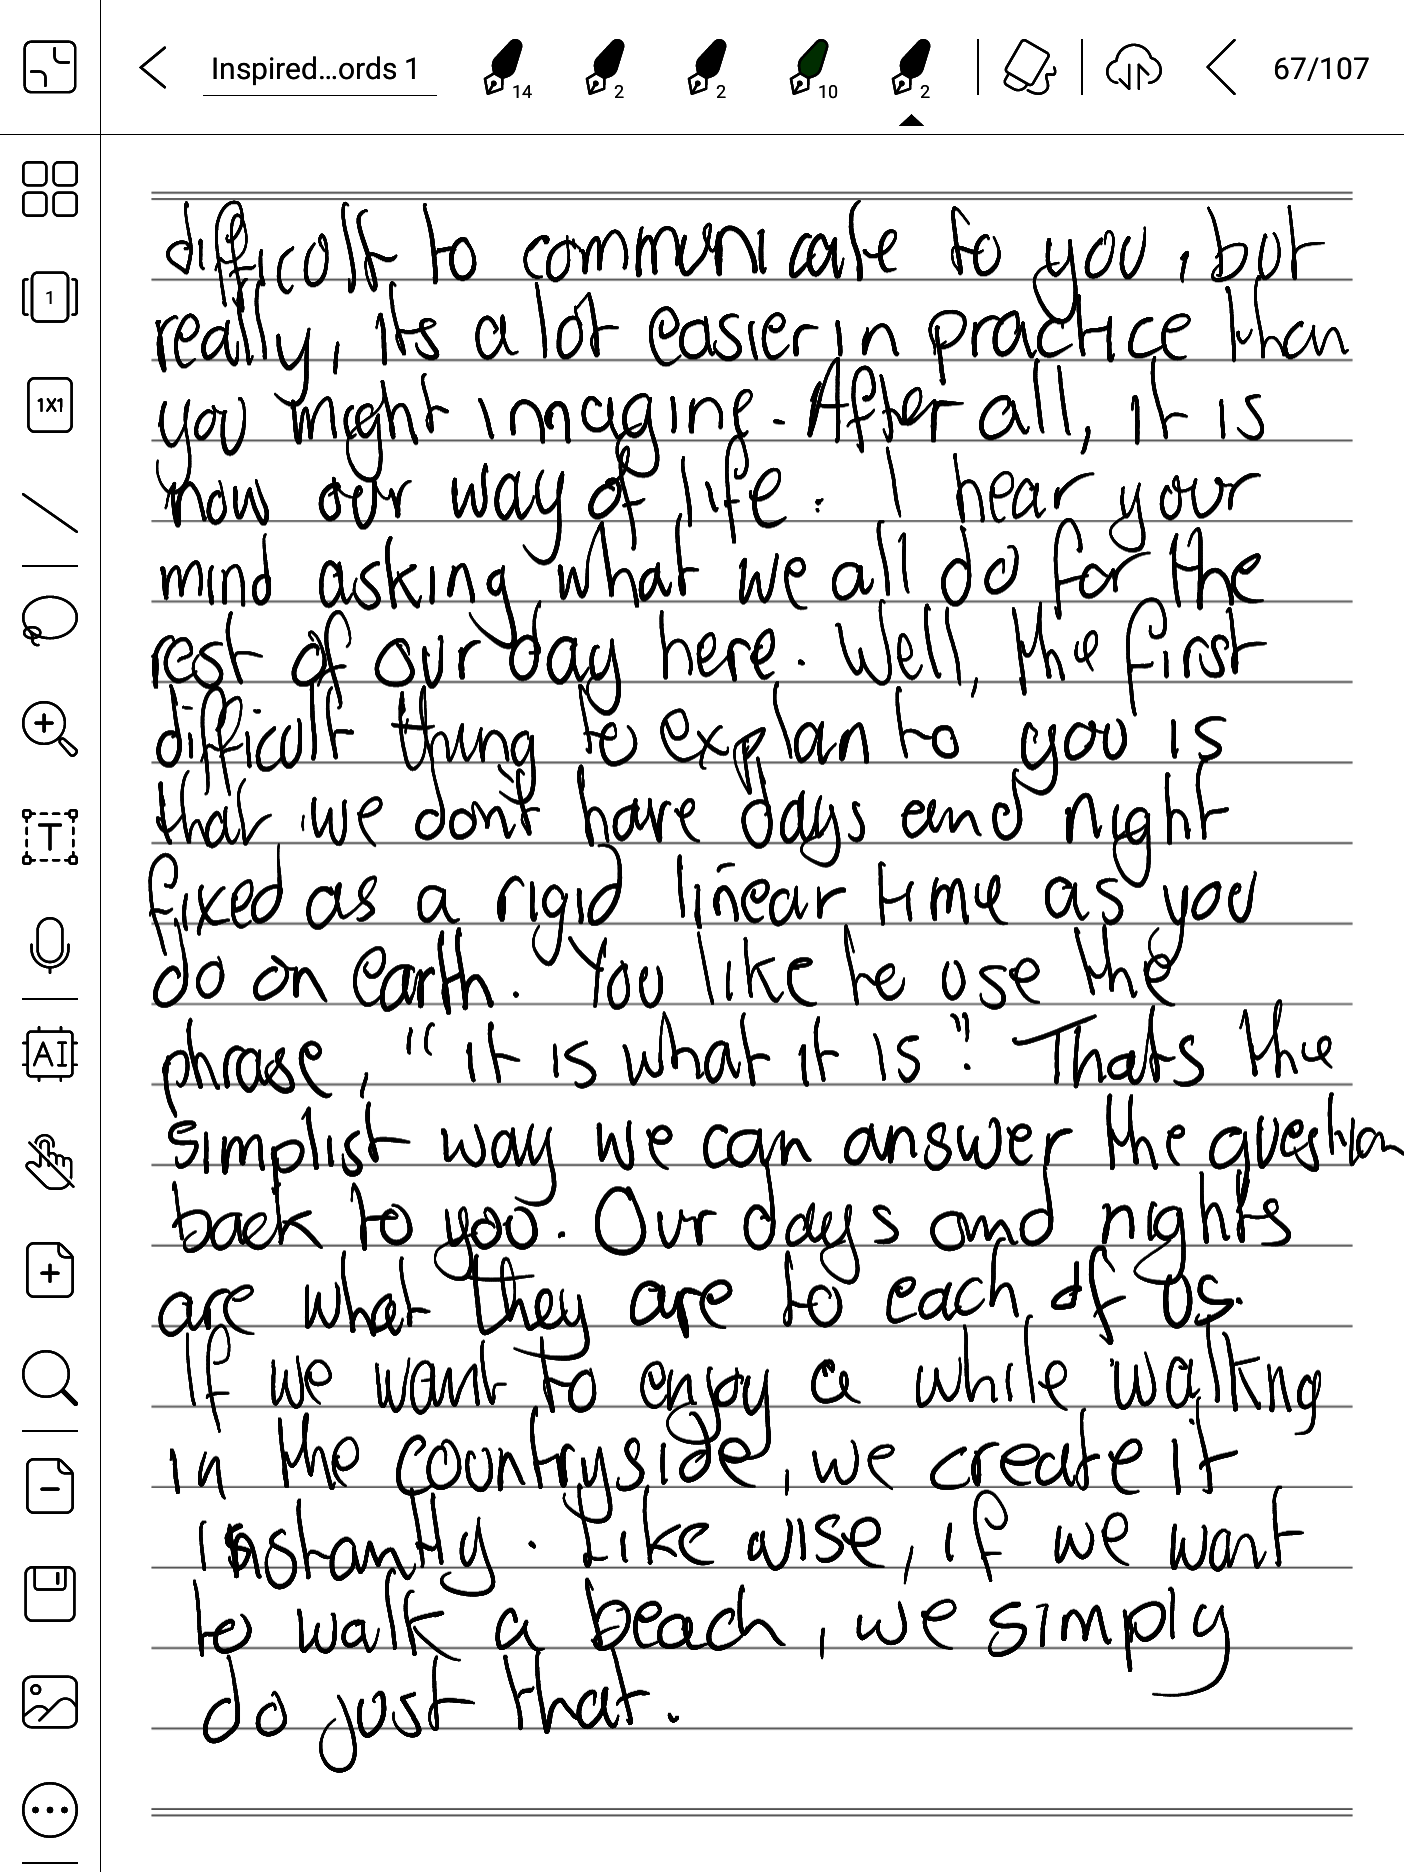 Inspired...ords 1
14
2
2
10
2
67/107
1
1X1
T
AI
difficult to communicate to you, but
really, its a lot easier in practice than
you might immagine. After all, it is
now our way of life. I hear your
mind asking what we all do for the
rest of our day here. Well, the first
difficult thing to explan to you is
that we don't have days and night
fixed as a rigid linear time as you
do on earth. You like to use the
phrase, "it is what it is". Thats the
simplist way we can answer the question
back to you. Our days and nights
are what they are to each of us.
If we want to enjoy a while walkng
in the countryside, we create it
instantly. Like wise, if we want
to walk a beach, we simply
do just that.